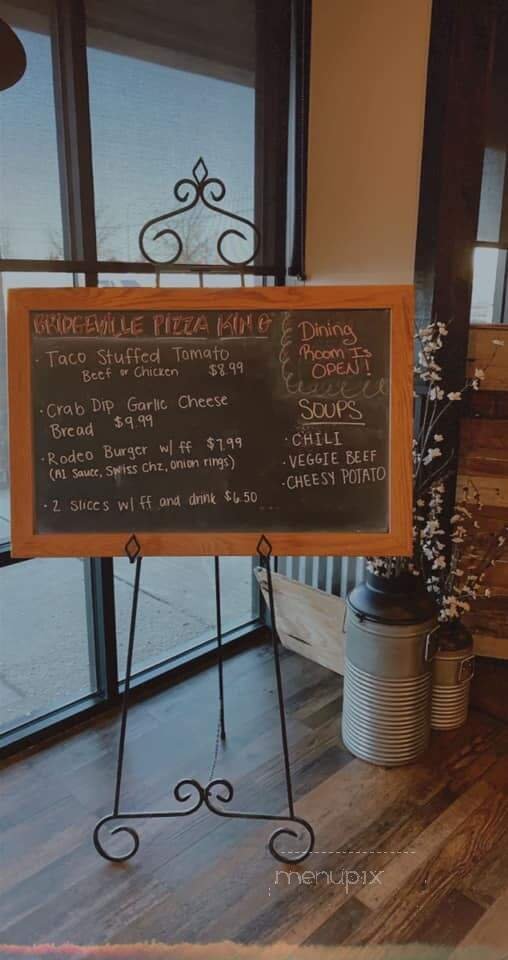 BRIDGEVILLE PIZZA KING
· Taco Stuffed Tomato
Beef or Chicken $8.99
· Crab Dip Garlic Cheese
Bread $9.99
· Rodeo Burger w/ ff $7.99
(A1 Sauce, Swiss chz, onion rings)
· 2 slices w/ ff and drink $6.50
Dining
Room Is
OPEN!
SOUPS
· CHILI
· VEGGIE BEEF
· CHEESY POTATO
menupix